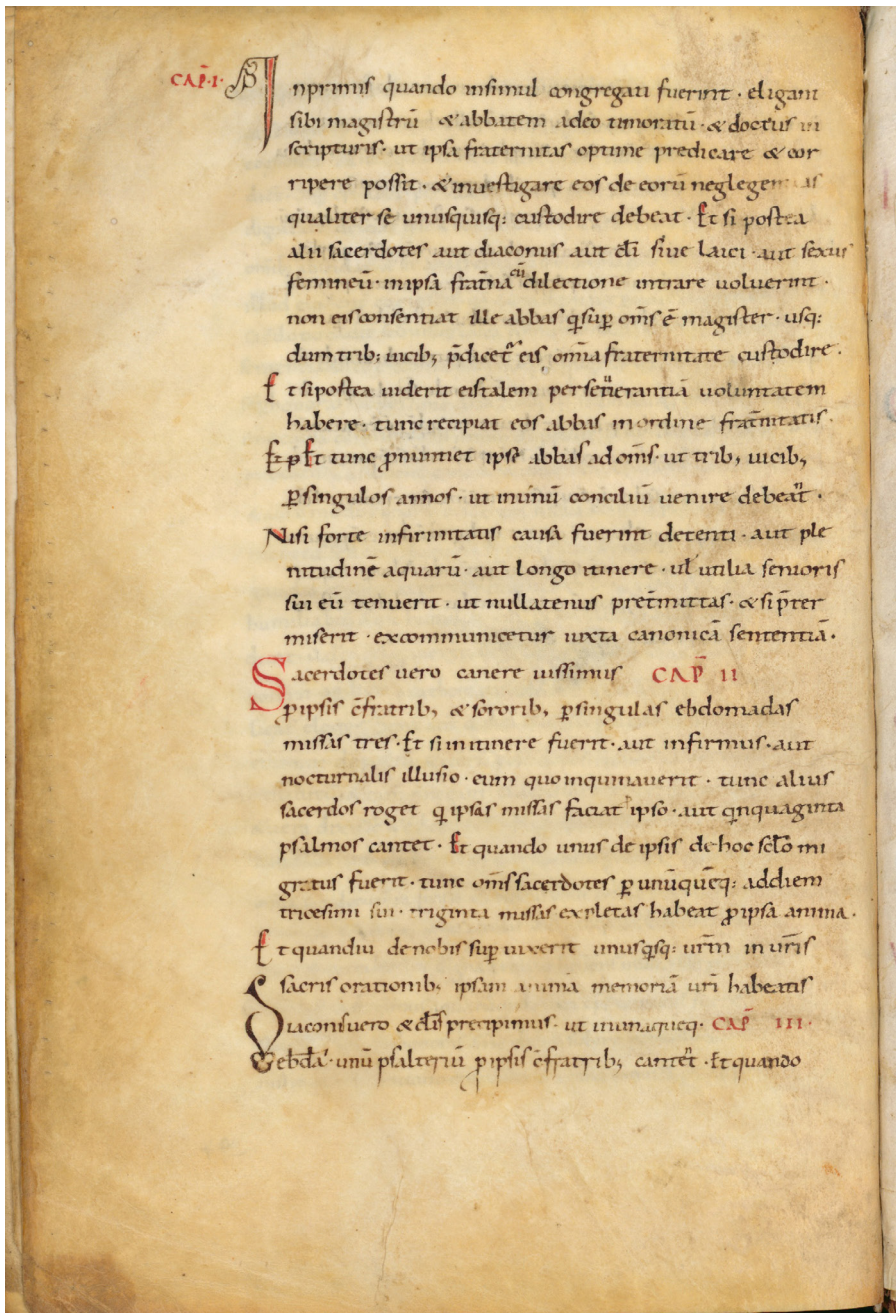 CAP̄·I· In primis quando insimul congregati fuerint · eligant
sibi magistrū & abbatem adeo timoratū · & doctus in
scripturis · ut ipsa fraternitas optime predicare & cor
ripere possit · & inuestigare eos de eorū neglegentias
qualiter se unusquisq: custodire debeat · Et si postea
alii sacerdotes aut diaconus aut cl̄i siue laici · aut sexus
femineū · in ipsa frat̄na dilectione intrare voluerint ·
non eis consentiat ille abbas q̄ sup̄ om̄s ē magister · usq:
dum trib; uicib; p̄dicet eis omnia fraternitate custodire ·
Et si postea uiderit eis talem perseuerantiā voluntatem
habere · tunc recipiat eos abbas in ordine frat̄nitatis ·
Et tunc p̄nuntiet ipse abbas ad om̄s · ut trib; uicib;
p̱ singulos annos · ut in unū conciliū uenire debeat̄ ·
Nisi forte infirmitatis causa fuerint detenti · aut ple
nitudinē aquarū · aut longo itinere · ul̄ utilia senioris
sui eū tenuerit · ut nullatenus pret̄mittas · & si p̄ter
miserit · excommunicetur iuxta canonicā sententiā ·
Sacerdotes uero canere iussimus CAP̄ II
p̱ ipsis c̄fratrib; & sororib; p̱ singulas ebdomadas
missas tres · Et si in itinere fuerit · aut infirmus · aut
nocturnalis illusio · eum quo inquinauerit · tunc alius
sacerdos roget q̄ ipsas missas faciat ipso · aut q̄nquaginta
psalmos cantet · Et quando unus de ipsis de hoc scl̄o mi
gratus fuerit · tunc om̄s sacerdotes p̱ unūquēq: ad diem
tricesimi sui · triginta missas expletas habeat p̱ ipsa anima ·
Et quandiu de nobis sup̱ uixerit unusq̄sq: ur̄m in ur̄is
sacris orationib; ipsam anima memoriā ur̄i habeatis
Diaconi uero & cl̄is precipimus · ut in unaqueq · CAP̄ III ·
ebd̄a · unū psalteriū p̱ ipsis c̄fratrib; cantet̄ · Et quando